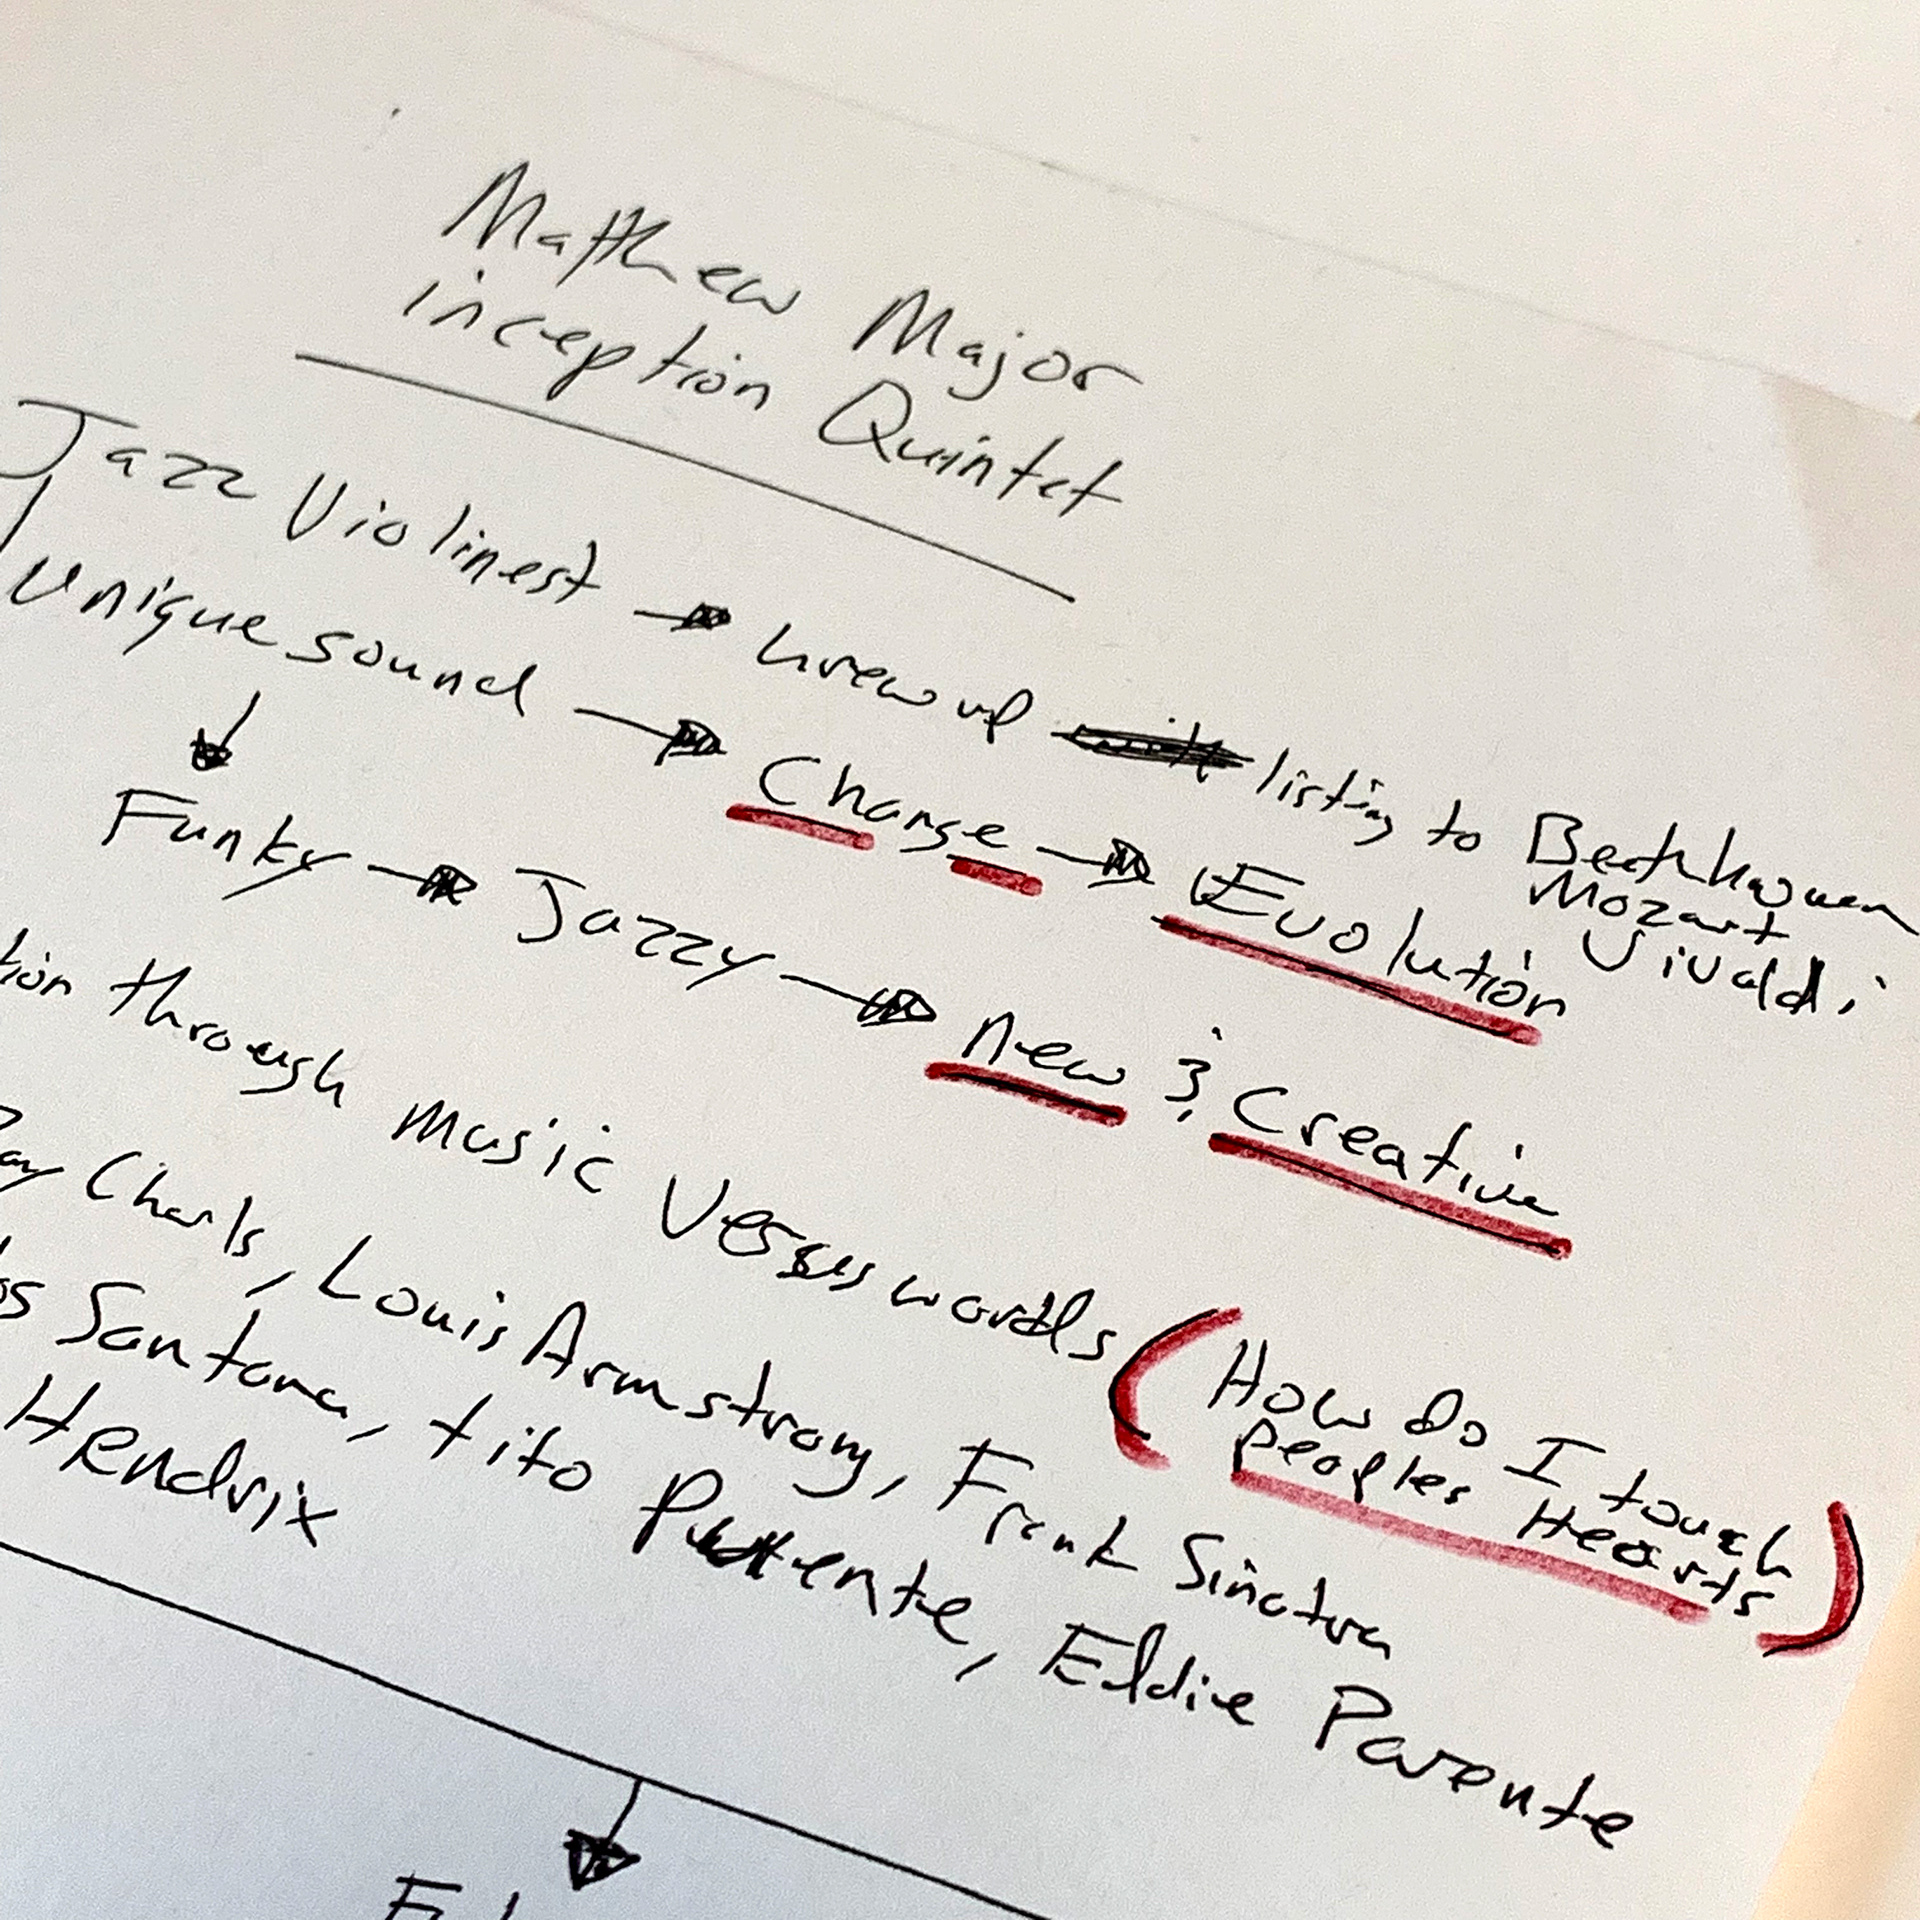 Matthew Major
inception Quintet
Jazz Violinest → Grew up listing to Beethhaven
Mozart
Vivaldi
Unique sound → Change → Evolution
Funky → Jazzy → New & Creative
tion through music Versus words (How do I touch
peoples Hearts)
Ray Charls, Louis Armstrong, Frank Sinatra
os Santana, tito Puente, Eddie Parente
Hendrix